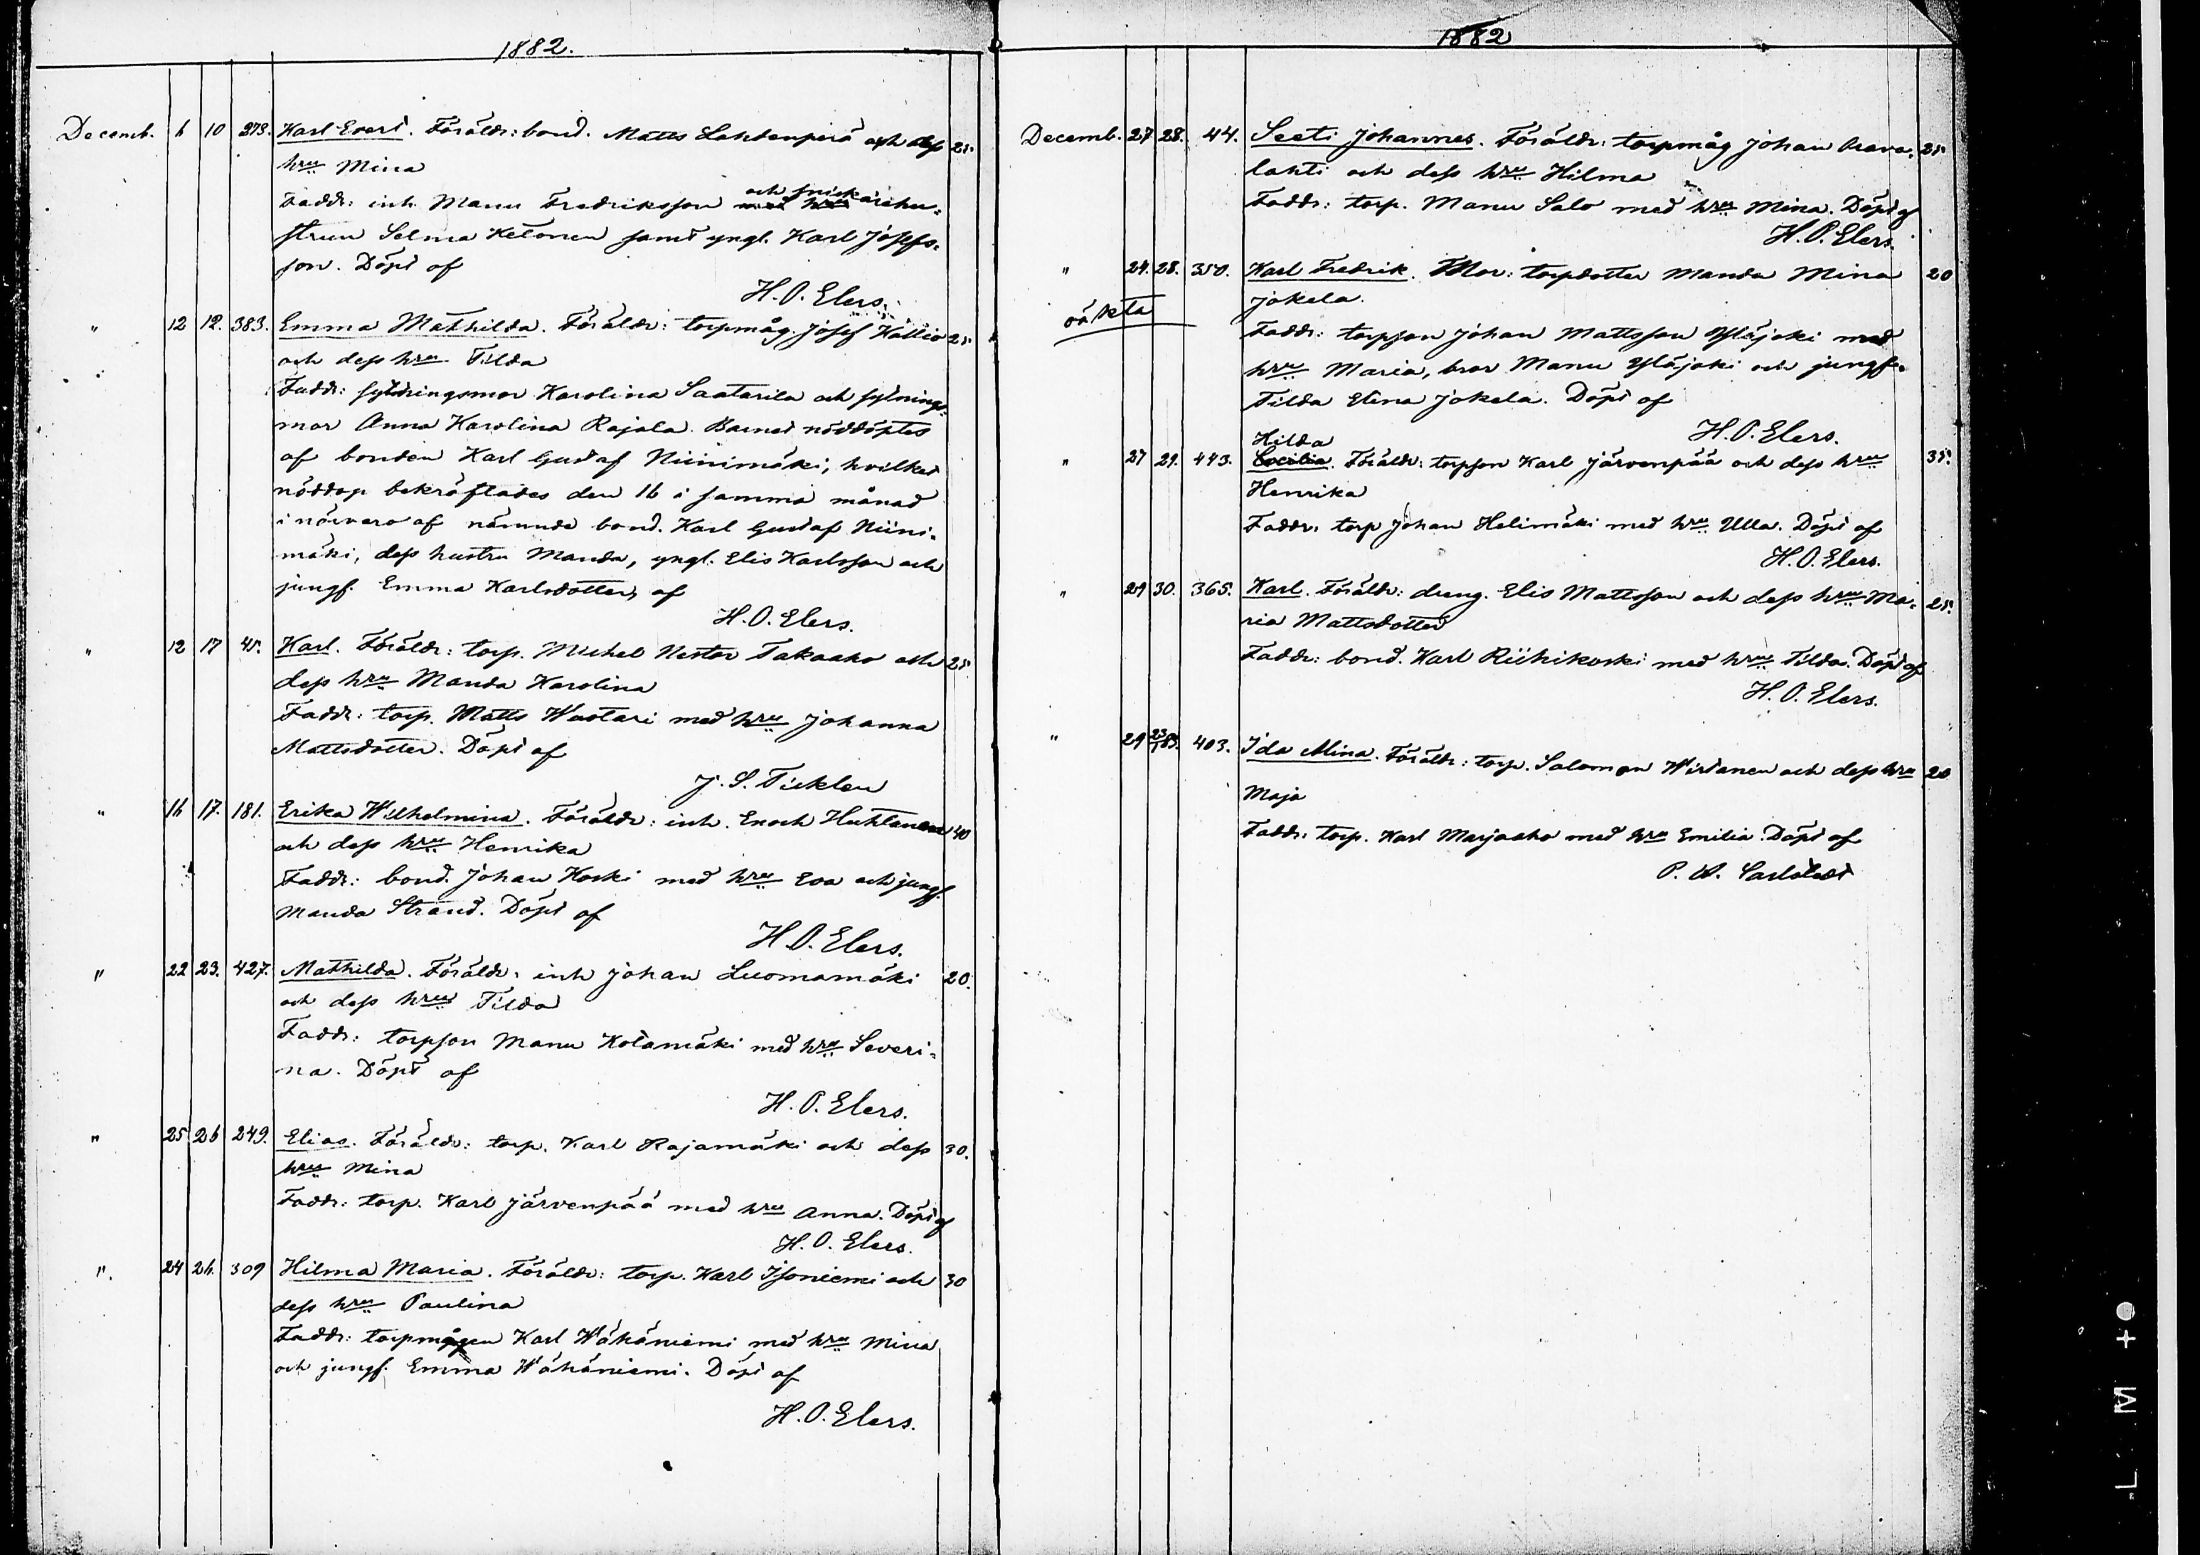 1882.
Decemb. 6 10 273. Karl Evert. Föräldr: bond. Matts Lahdenperä och dess 25.
hru Mina
Faddr: inh. Manu Fredriksson och snickarehu-
strun Selma Ketonen samt yngl. Karl Josefs-
son. Döpt af
H. O. Elers.
" 12 12. 383. Emma Mathilda. Föräldr: torpmåg. Josef Kallio 25
och dess hru Tilda
Faddr: sytningsmor Karolina Saatarila och sytnings-
mor Anna Karolina Rajala. Barnet nöddöptes
af bonden Karl Gustaf Niinimäki, hvilket
nöddop bekräftades den 16 i samma månad
i närvaro af nämnde bond. Karl Gustaf Niini-
mäki, dess hustru Manda, yngl. Elis Karlsson och
jungf. Emma Karlsdotter, af
H. O. Elers.
" 12 17 45. Karl. Föräldr: torp. Michel Nestor Takaaho och 25.
dess hru Manda Karolina
Faddr: torp. Matts Wuotari med hru Johanna
Mattsdotter. Döpt af
J. S. Ticklen
" 16 17. 181. Erika Wilhelmina. Föräldr: inh. Enoch Huhtanen 40
och dess hru Henrika
Faddr: bond. Johan Koski med hru Eva och jungf.
Manda Strand. Döpt af
H. O. Elers.
" 22 23. 427. Mathilda. Föräldr: inh Johan Luomamäki 20.
och dess hru Tilda
Faddr: torpson Manu Kotamäki med hru Severi-
na. Döpt af
H. O. Elers.
" 25 26 249. Elias. Föräldr: torp. Karl Rajamäki och dess 30.
hru Mina
Faddr: torp. Karl Järvenpää med hru Anna. Döpt af
H. O. Elers.
" 24 26. 309 Hilma Maria. Föräldr: torp. Karl Isoniemi och 30
dess hru Paulina
Faddr: torpmågen Karl Wähäniemi med hru Mina
och jungf. Emma Wähäniemi. Döpt af
H. O. Elers.
1882
Decemb. 27 28. 44. Seeti Johannes. Föräldr: torpmåg Johan Arava- 25
lahti och dess hru Hilma
Faddr: torp. Manu Salo med hru Mina. Döpt af
H. O. Elers.
" 24. 28. 350. Karl Fredrik. Mor: torpdotter Manda Mina 20
oäkta Jokela.
Faddr: torpson Johan Mattsson Yläjoki med
hru Maria, bror Manu Yläjoki och jungfr.
Tilda Stina Jokela. Döpt af
H. O. Elers.
Hilda
" 27 29. 443. Cecilia. Föräldr: torpson Karl Järvenpää och dess hru 35.
Henrika
Faddr: torp Johan Halimäki med hru Ulla. Döpt af
H. O. Elers.
" 29 30. 365. Karl. Föräldr: dreng. Elis Mattsson och dess hru Ma- 25.
ria Mattsdotter
Faddr: bond. Karl Riihikoski med hru Tilda. Döpt af
H. O. Elers.
" 29 23/1 83. 403. Ida Mina. Föräldr: torp. Salomon Wirtanen och dess hru 20
Maja
Faddr: torp. Karl Marjaaho med hru Emilia. Döpt af
P. W. Carlstedt
L M